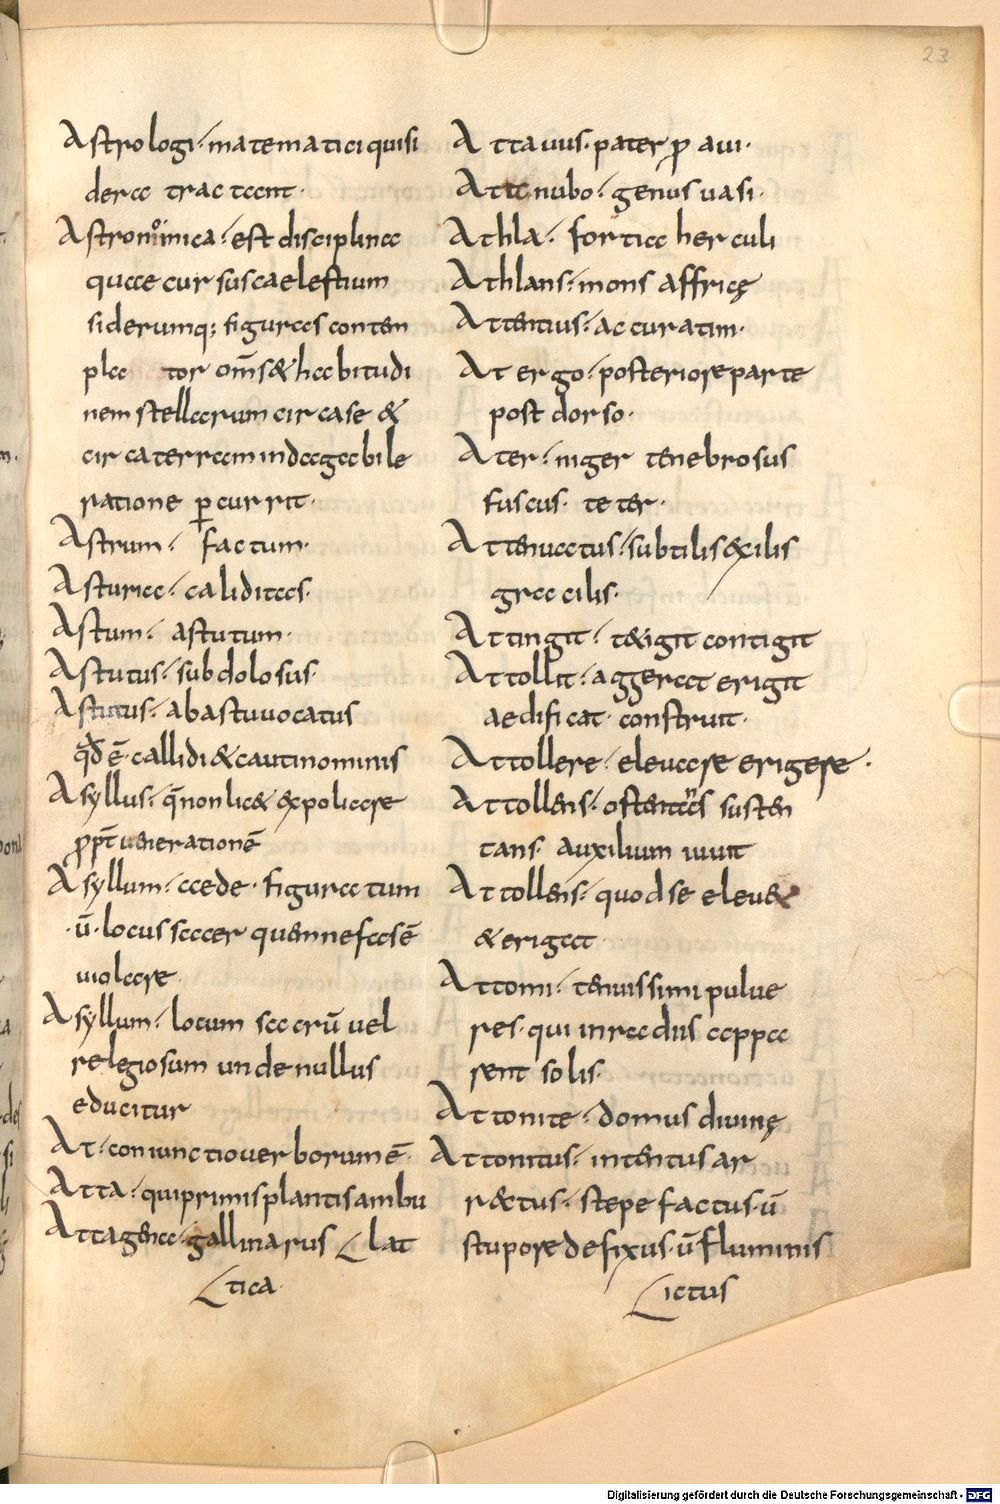 23
Astrologi · matematici qui si
dera tractant ·
Astronoimica · est disciplina
quae cursus caelestium
siderumq; figuras conten
pla tor om̄s & habitudi
nem stellarum circa se &
circa terram indagabile
ratione ꝑcurrit ·
Astrum · factum ·
Asturia · caliditas ·
Astum · astutum ·
Astutus · subdolosus ·
Astutus · ab astu uocatus
qđ ē · callidi & cauti nominis
Asyllus · q̄ non lic& expoliare
ꝓpt̄ uenerationē
Asyllum · aede · figuratum
· ū · locus sacer quem nefas ē
uiolare ·
Asyllum · locum sacrū uel
relegiosum unde nullus
educitur
At · coniunctio uerborum ē ·
Atta · qui primis plantis ambu
Attagena · gallina rus lat
tica ·
Attauus · pater ꝓaui ·
Attanubo · genus uasi ·
Athla · fortia herculi
Athlans · mons affricę
Attentius · accuratim ·
At ergo · posteriore parte
post dorso ·
Ater · niger tenebrosus
fuscus · teter ·
Attenuatus · subtilis exilis
gracilis ·
Attingit · t&igit contigit
Attollit · aggerat erigit
aedificat · construit ·
Attollere · eleuare erigere ·
Attollens · ostentans susten
tans · auxilium iuuit
Attollens · quod se eleu&
& erigat ·
Attomi · tenuissimi pulue
res · qui in radiis appa
rent solis ·
Attonite · domus diuinę
Attonitus · intentus ar
r&ctus · stepefactus · ū
stupore defixus · ū fluminis
ictus
Digitalisierung gefördert durch die Deutsche Forschungsgemeinschaft - DFG